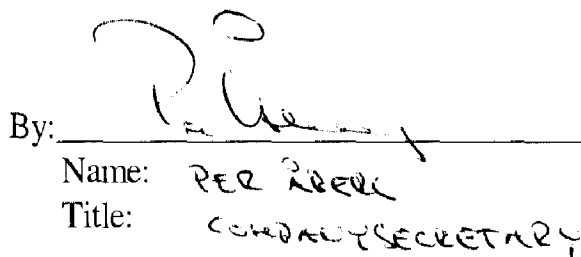 By:
Name: PER ÅBERG
Title: COMPANY SECRETARY